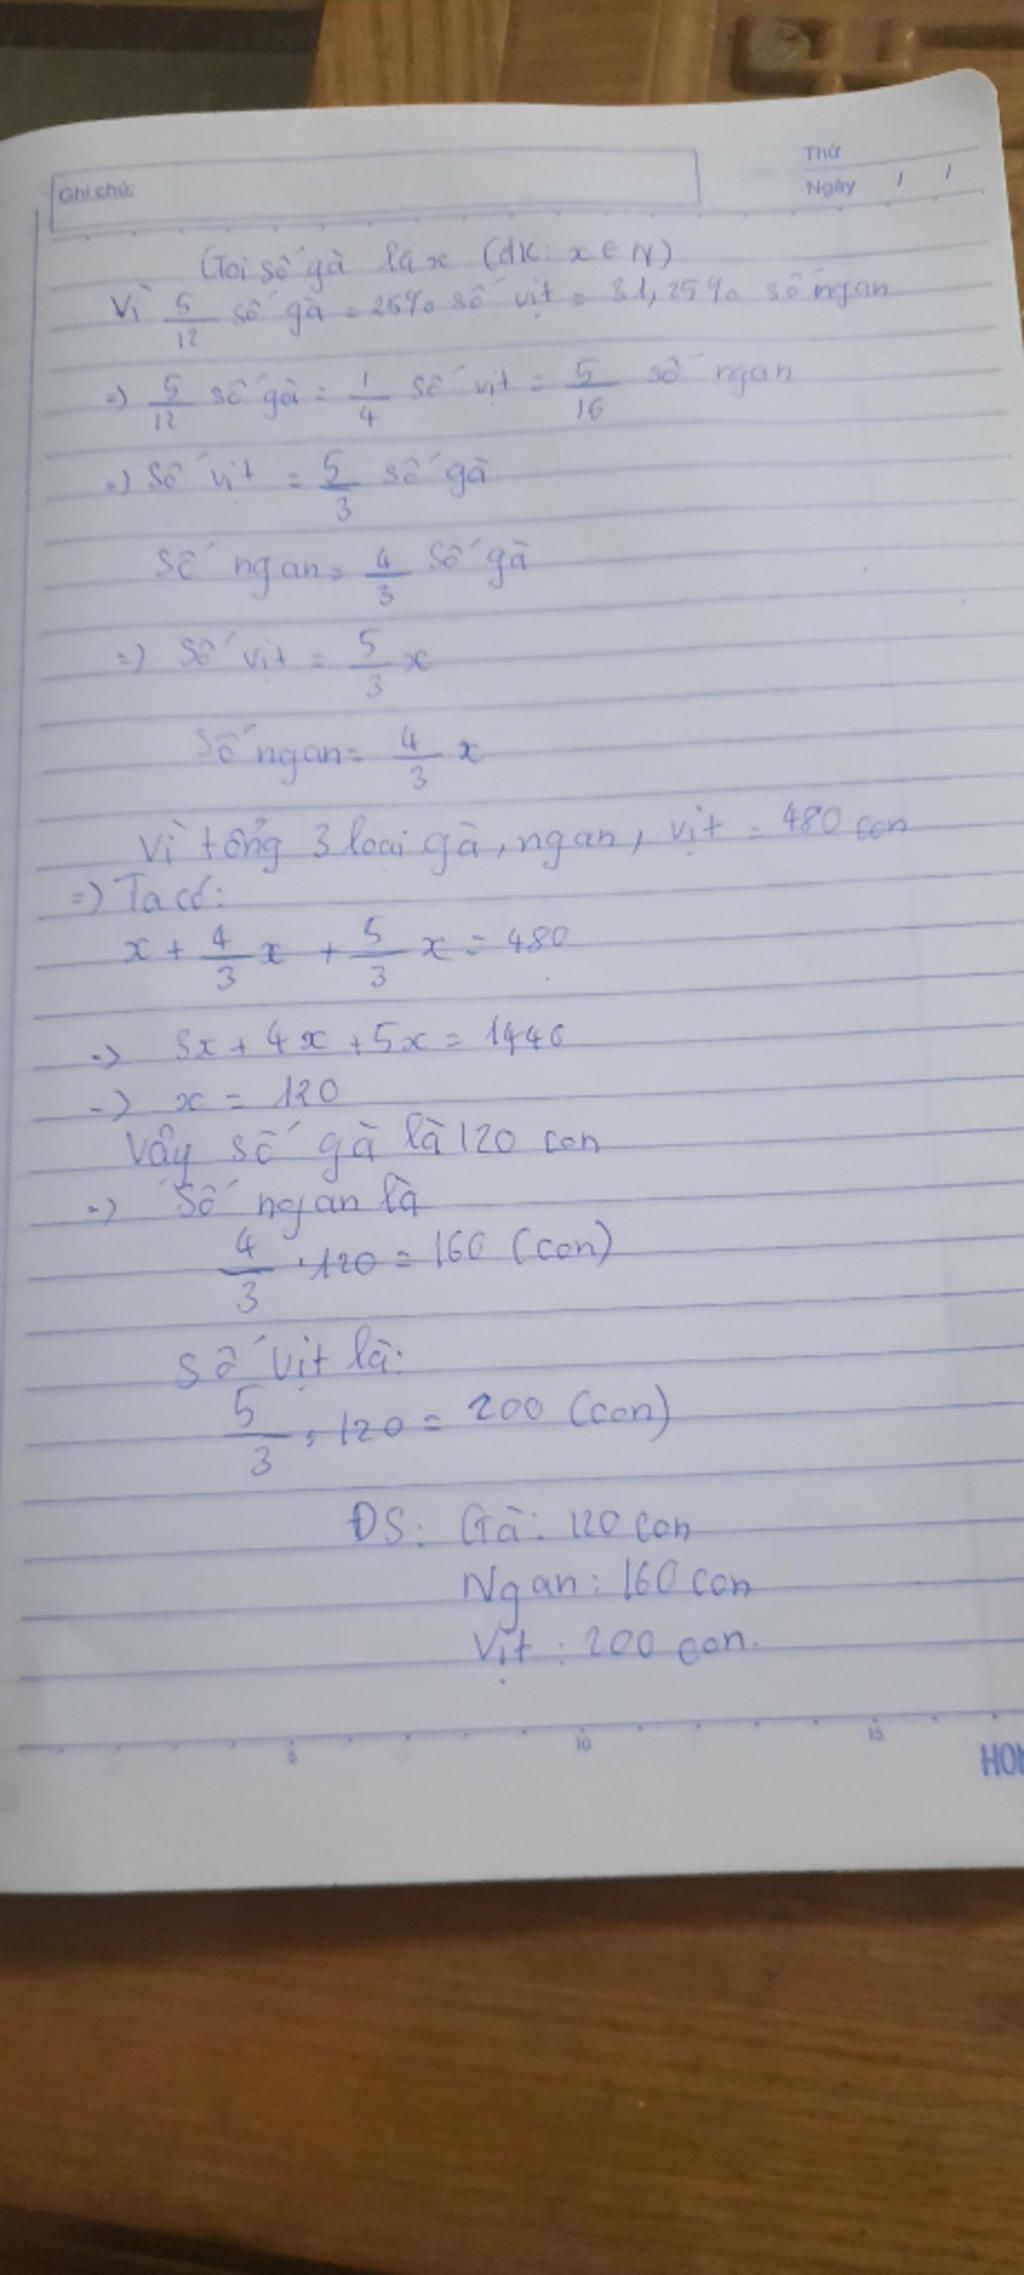 Ghi chú:
Thứ
Ngày / /
Gọi số gà là x (đk: x ∈ N)
Vì 5/12 số gà = 25% số vịt = 31,25% số ngan
=) 5/12 số gà = 1/4 số vịt = 5/16 số ngan
=) Số vịt = 5/3 số gà
Số ngan = 4/3 số gà
=) Số vịt = 5/3 x
Số ngan = 4/3 x
Vì tổng 3 loại gà, ngan, vịt = 480 con
=) Ta có:
x + 4/3 x + 5/3 x = 480
=> 3x + 4x + 5x = 1440
=> x = 120
Vậy số gà là 120 con
=> Số ngan là
4/3 . 120 = 160 (con)
Số vịt là:
5/3 . 120 = 200 (con)
ĐS: Gà: 120 con
Ngan: 160 con
Vịt: 200 con.
5 10 15